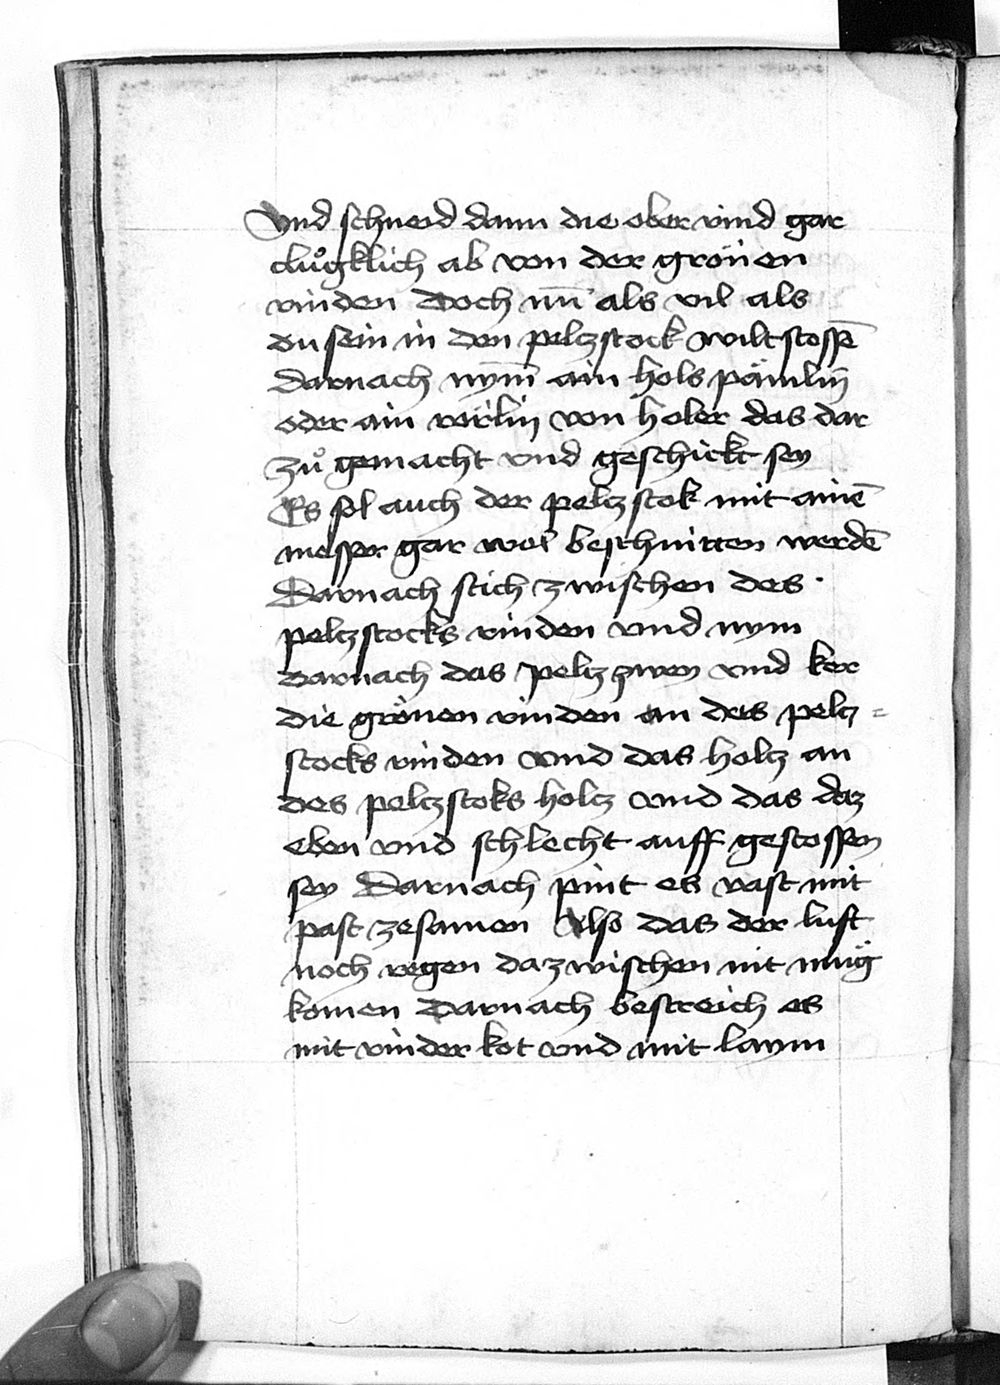 Vnd schneid dann die ober rind gar
cluͦgklich ab von der grönen
rinden Doch nu̅ als vil als
du sein in den peltzstock wilt stosse̅
Darnach nym̅ ain hols pämlin
oder ain rörlin von holer das dar
zuͦ gemacht vnd geschickt sey
Es sol auch der peltzstok mit aine̅
messer gar wol beschnitten werde̅
Darnach stich zwischen des
peltzstocks rinden vnd nym
darnach das peltzzwey vnd ker
die grönen rinden an des peltz=
stocks rinden vnd das holtz an
des peltzstoks holtz vnd das daz
eben vnd schlecht auff gestossen
sey Darnach pint es vast mit
past zesamen Also das der luft
noch regen dazwischen nit müg
komen Darnach bestreich es
mit rinder kot vnd mit laym